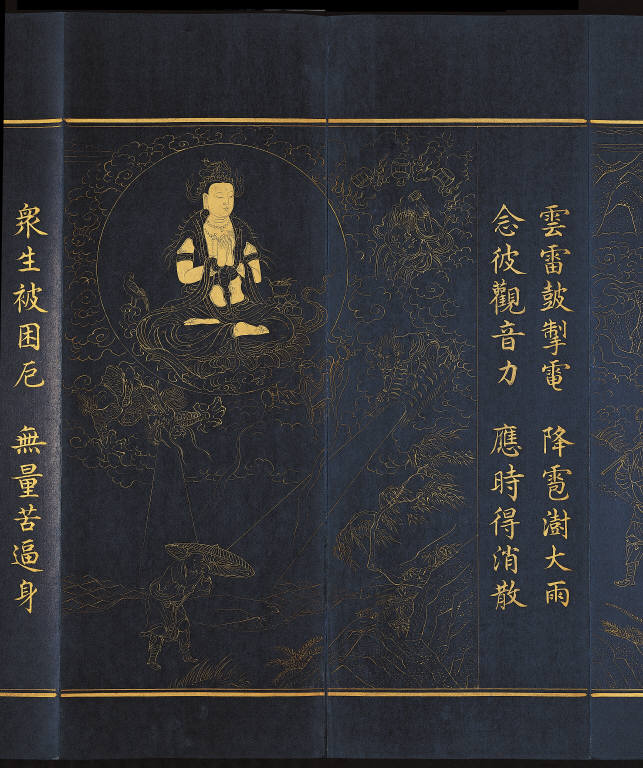 雲雷鼓掣電 降雹澍大雨
念彼觀音力 應時得消散
衆生被困厄 無量苦逼身